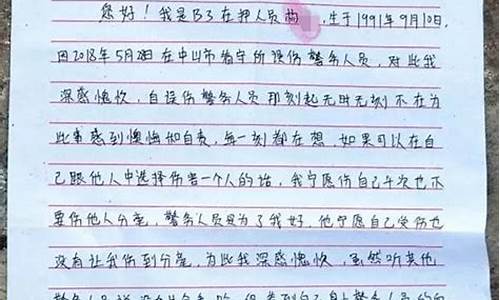 您好！我是B3在押人员曲，生于1991年9月10日，
因2018年5月2日在中山市看守所误伤警务人员，对此我
深感愧疚，自误伤警务人员那刻起无时无刻不在为
此事感到懊悔和自责，每一刻都在想，如果可以在自
己跟他人中选择伤害一个人的话，我宁愿伤自己千次也不
要伤他人分毫，警务人员是为了我好，他宁愿自己受伤也
没有让我伤到分毫，为此我深感愧疚，虽然听其他
警务人员说没有什么